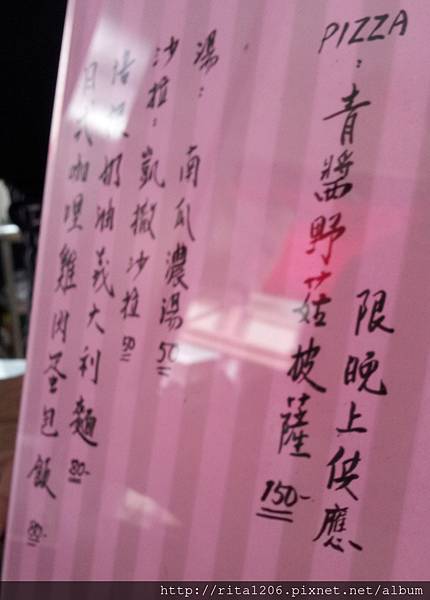 PIZZA：青醬野菇披薩 150-
限晚上供應
湯：南瓜濃湯 50
沙拉：凱撒沙拉 50
培根奶油義大利麵 80-
日式咖哩雞肉蛋包飯 80-
http://rita1206.pixnet.net/album